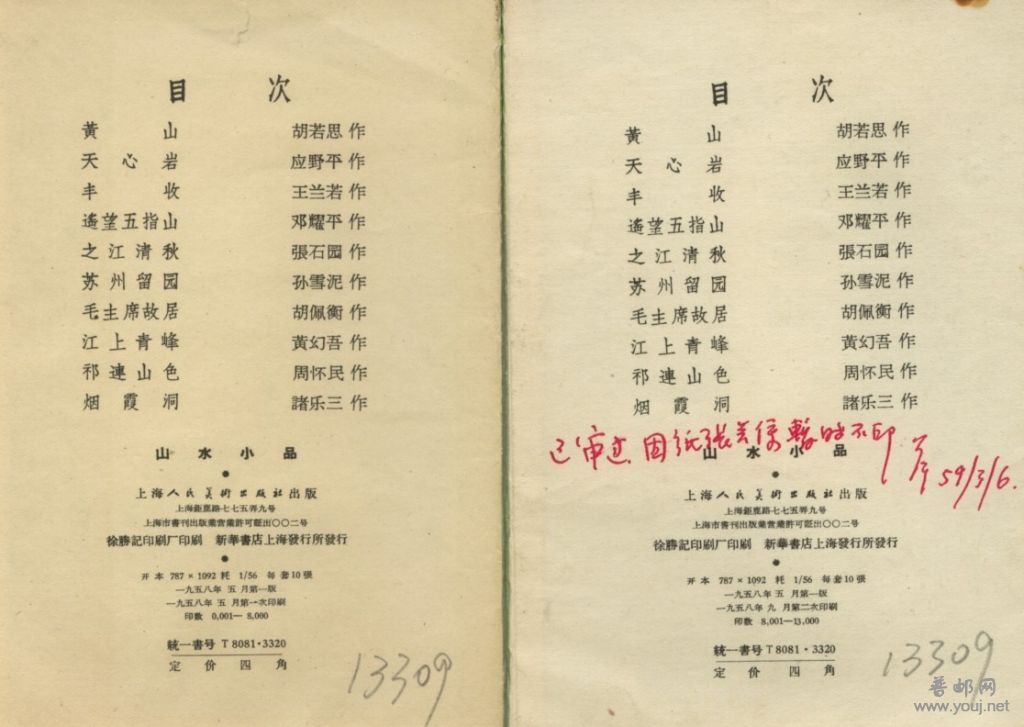 目次
黃山 胡若思作
天心岩 应野平作
丰收 王兰若作
遙望五指山 邓耀平作
之江清秋 張石园作
苏州留园 孙雪泥作
毛主席故居 胡佩衡作
江上青峰 黃幻吾作
祁連山色 周怀民作
烟霞洞 諸乐三作
山水小品
上海人民美術出版社出版
上海鉅鹿路七七五弄九号
上海市書刊出版業营業許可証出〇〇二号
徐勝記印刷厂印刷 新華書店上海發行所發行
开本 787×1092 耗 1/56 每套10張
一九五八年 五 月第一版
一九五八年 五 月第一次印刷
印数 0,001—8,000
統一書号 T 8081·3320
定价四角
13309
目次
黃山 胡若思作
天心岩 应野平作
丰收 王兰若作
遙望五指山 邓耀平作
之江清秋 張石园作
苏州留园 孙雪泥作
毛主席故居 胡佩衡作
江上青峰 黃幻吾作
祁連山色 周怀民作
烟霞洞 諸乐三作
已审过 因纸張关係 暫时不印 59/3/6.
山水小品
上海人民美術出版社出版
上海鉅鹿路七七五弄九号
上海市書刊出版業营業許可証出〇〇二号
徐勝記印刷厂印刷 新華書店上海發行所發行
开本 787×1092 耗 1/56 每套10張
一九五八年 五 月第一版
一九五八年 九 月第二次印刷
印数 8,001—13,000
統一書号 T 8081·3320
定价四角
13309
普邮网
www.youj.net